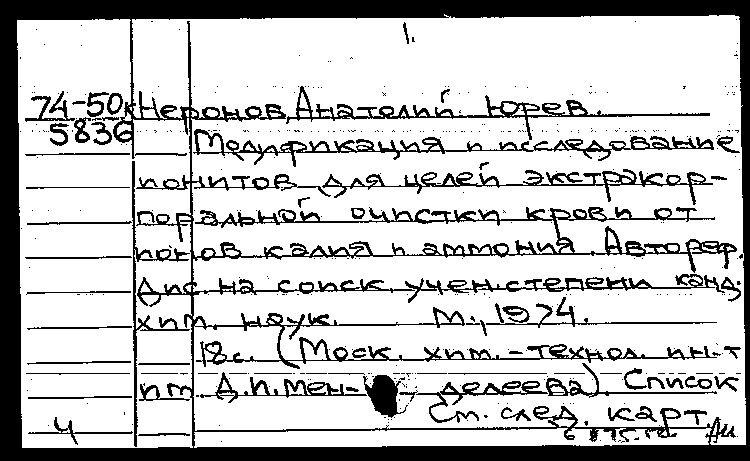 1.
74-50к Неронов, Анатолий Юрев.
5836 Модификация и исследование
ионитов для целей экстракор-
поральной очистки крови от
ионов калия и аммония. Автореф.
дис. на соиск. учен. степени канд.
хим. наук. М., 1974.
18 с. (Моск. хим.-технол. ин-т
им. Д.И. Мен- делеева). Список
См. след. карт.
Ч